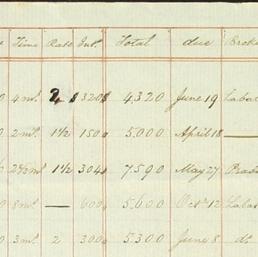 Time Rate Int. Total due Broke
4 mo. 2 $ 320 $ 4,320 June 19 Labat
2 mo. 1 1/2 150 5,000 April 18 —
2 1/2 mo. 1 1/2 304 7,590 May 27
8 mo. — 600 5,600 Oct 12 Labat
3 mo. 2 300 5,300 June 8 do